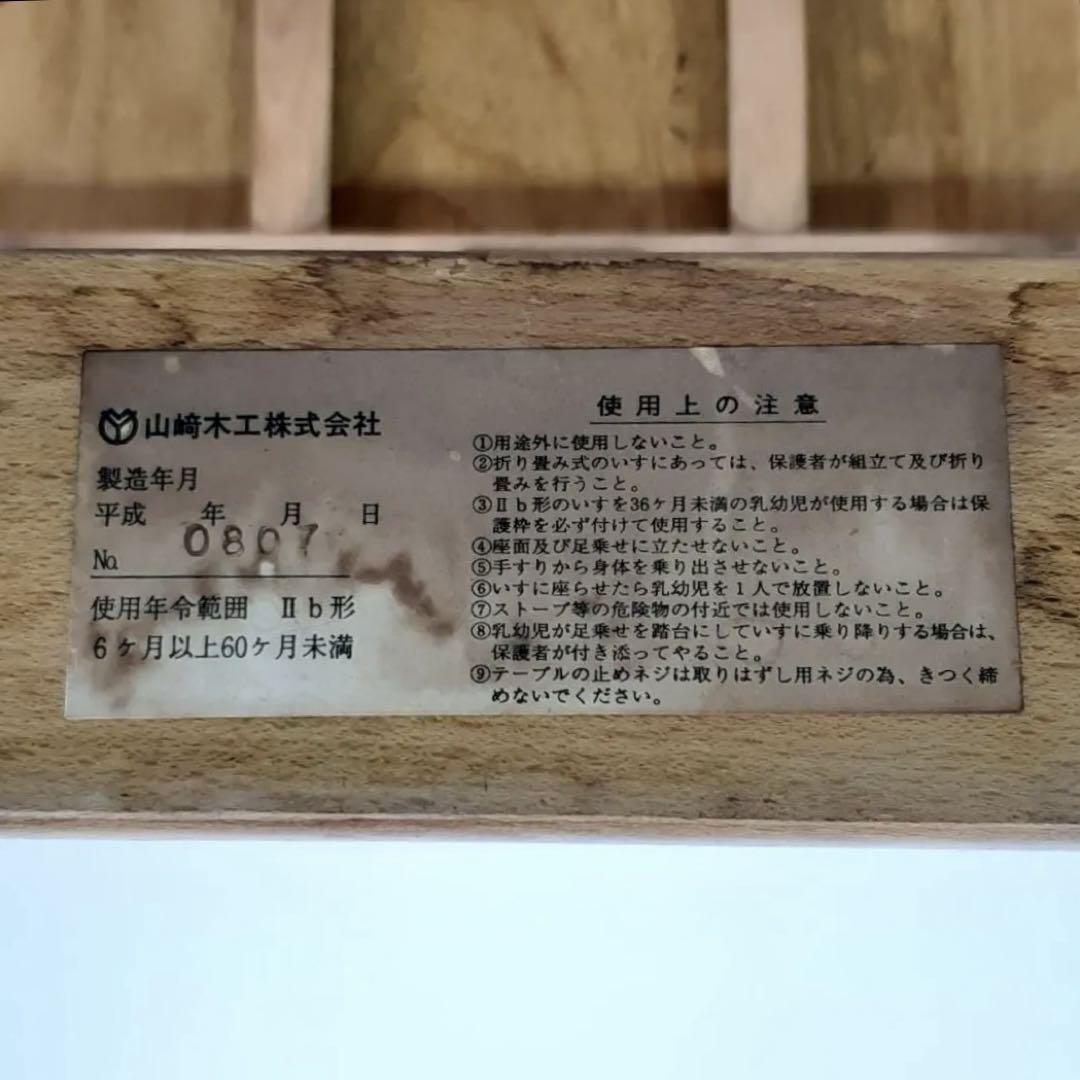 山﨑木工株式会社
製造年月
平成 年 月 日
0807
No.
使用年令範囲 Ⅱb形
6ヶ月以上60ヶ月未満
使用上の注意
①用途外に使用しないこと。
②折り畳み式のいすにあっては、保護者が組立て及び折り
畳みを行うこと。
③Ⅱb形のいすを36ヶ月未満の乳幼児が使用する場合は保
護枠を必ず付けて使用すること。
④座面及び足乗せに立たせないこと。
⑤手すりから身体を乗り出させないこと。
⑥いすに座らせたら乳幼児を1人で放置しないこと。
⑦ストーブ等の危険物の付近では使用しないこと。
⑧乳幼児が足乗せを踏台にしていすに乗り降りする場合は、
保護者が付き添ってやること。
⑨テーブルの止めネジは取りはずし用ネジの為、きつく締
めないでください。